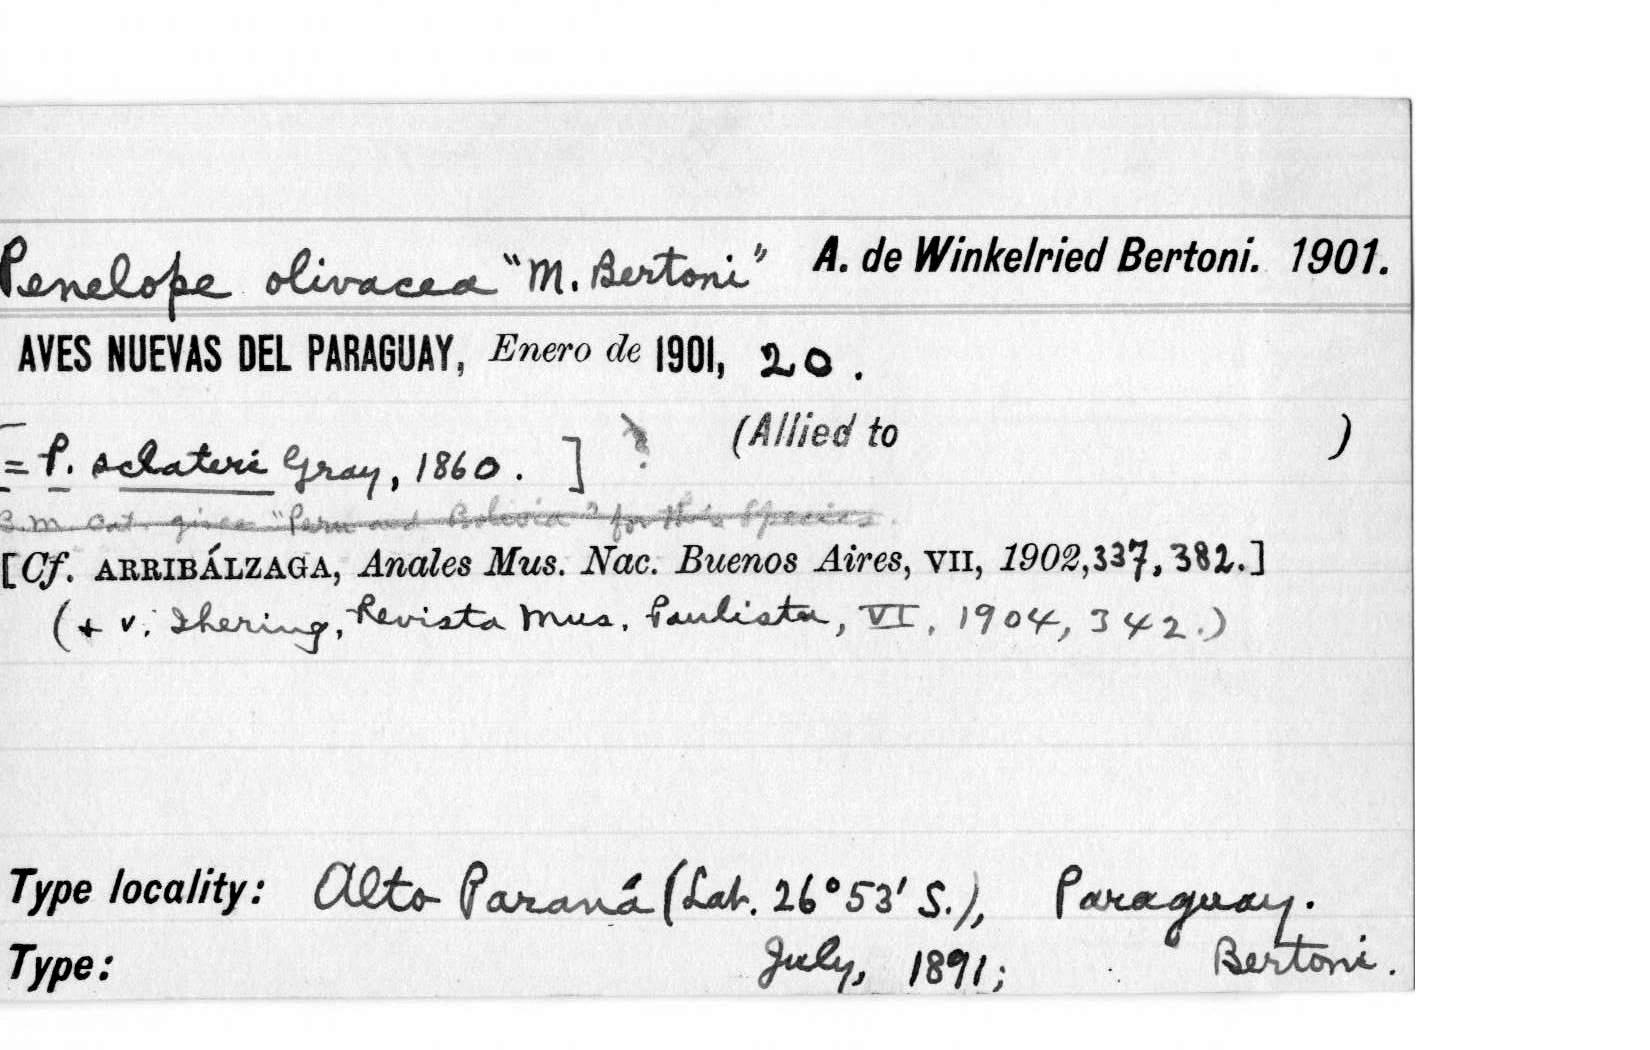 Penelope olivacea "M. Bertoni" A. de Winkelried Bertoni. 1901.
AVES NUEVAS DEL PARAGUAY, Enero de 1901, 20.
[= P. sclateri Gray, 1860. ] ? (Allied to )
B.M. Cat. gives "Peru and Bolivia" for this Species.
[Cf. ARRIBÁLZAGA, Anales Mus. Nac. Buenos Aires, VII, 1902, 337, 382.]
(+ v. Ihering, Revista Mus. Paulista, VI, 1904, 342.)
Type locality: Alto Paraná (Lat. 26°53' S.), Paraguay.
Type: July, 1891; Bertoni.